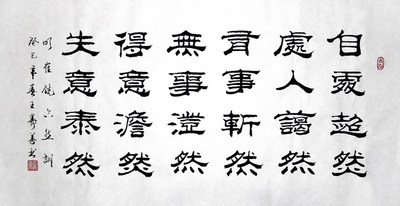 自處超然
處人藹然
有事斬然
無事澄然
得意澹然
失意泰然
明崔铣六然訓
癸巳年春王勇義书